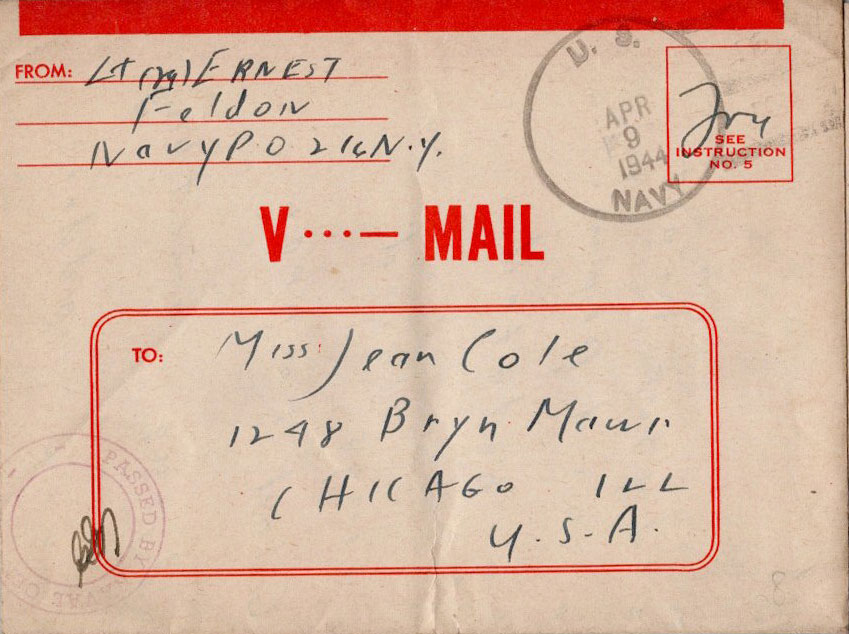 FROM: Lt (jg) ERNEST
Feldon
Navy P O 216 N.Y.
U. S.
APR
9
1944
NAVY
SEE
INSTRUCTION
NO. 5
V ···— MAIL
TO: Miss Jean Cole
1248 Bryn Mawr
CHICAGO ILL
U.S.A.
PASSED BY NAVAL